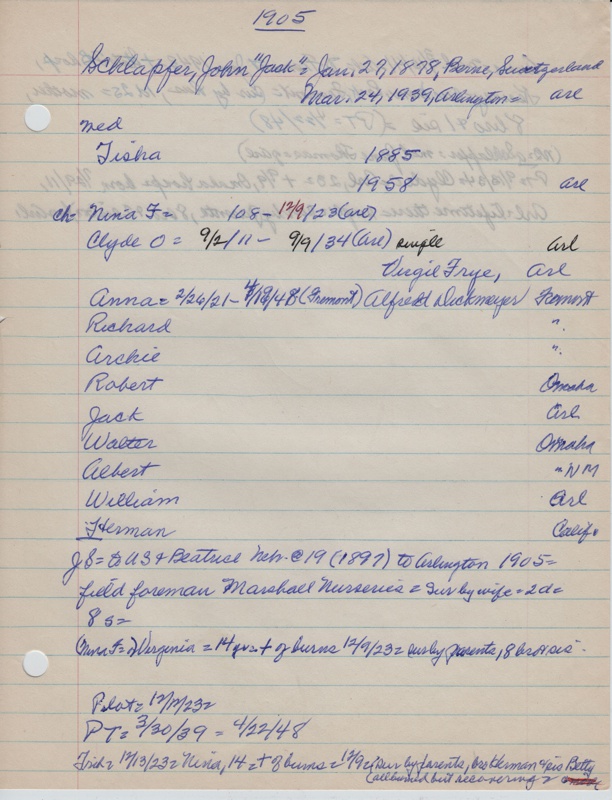 1905
Schlapfer, John "Jack" = Jan. 27, 1878, Berne, Switzerland
Mar. 24, 1939, Arlington = arl
med
Tisha 1885
1958 arl
ch = Nina F = 108 - 12/9/23 (arl)
Clyde O = 9/2/11 - 9/9/34 (arl) single Arl
Virgil Frye, Arl
Anna = 2/26/21 - 4/18/48 (Fremont) Alfred Dickmeyer Fremont
Richard ".
Archie ".
Robert Omaha
Jack Arl
Walter Omaha
Albert " NM
William Arl
Herman Calif.
JS = to US + Beatrice Neb. @ 19 (1897) to Arlington 1905 =
field foreman Marshall Nurseries = sur by wife = 2d =
8s =
(Nina F = ) Virginia = 14 yrs = + of burns 12/9/23 = sur by parents, 8 bro + sis -
Pilot = 12/12/23 =
PT = 3/30/39 = 4/22/48
Trib = 12/13/23 = Nina, 14 = + of burns = 12/9 = sur by parents, bro Herman & sis Betty
(all burned but recovering =